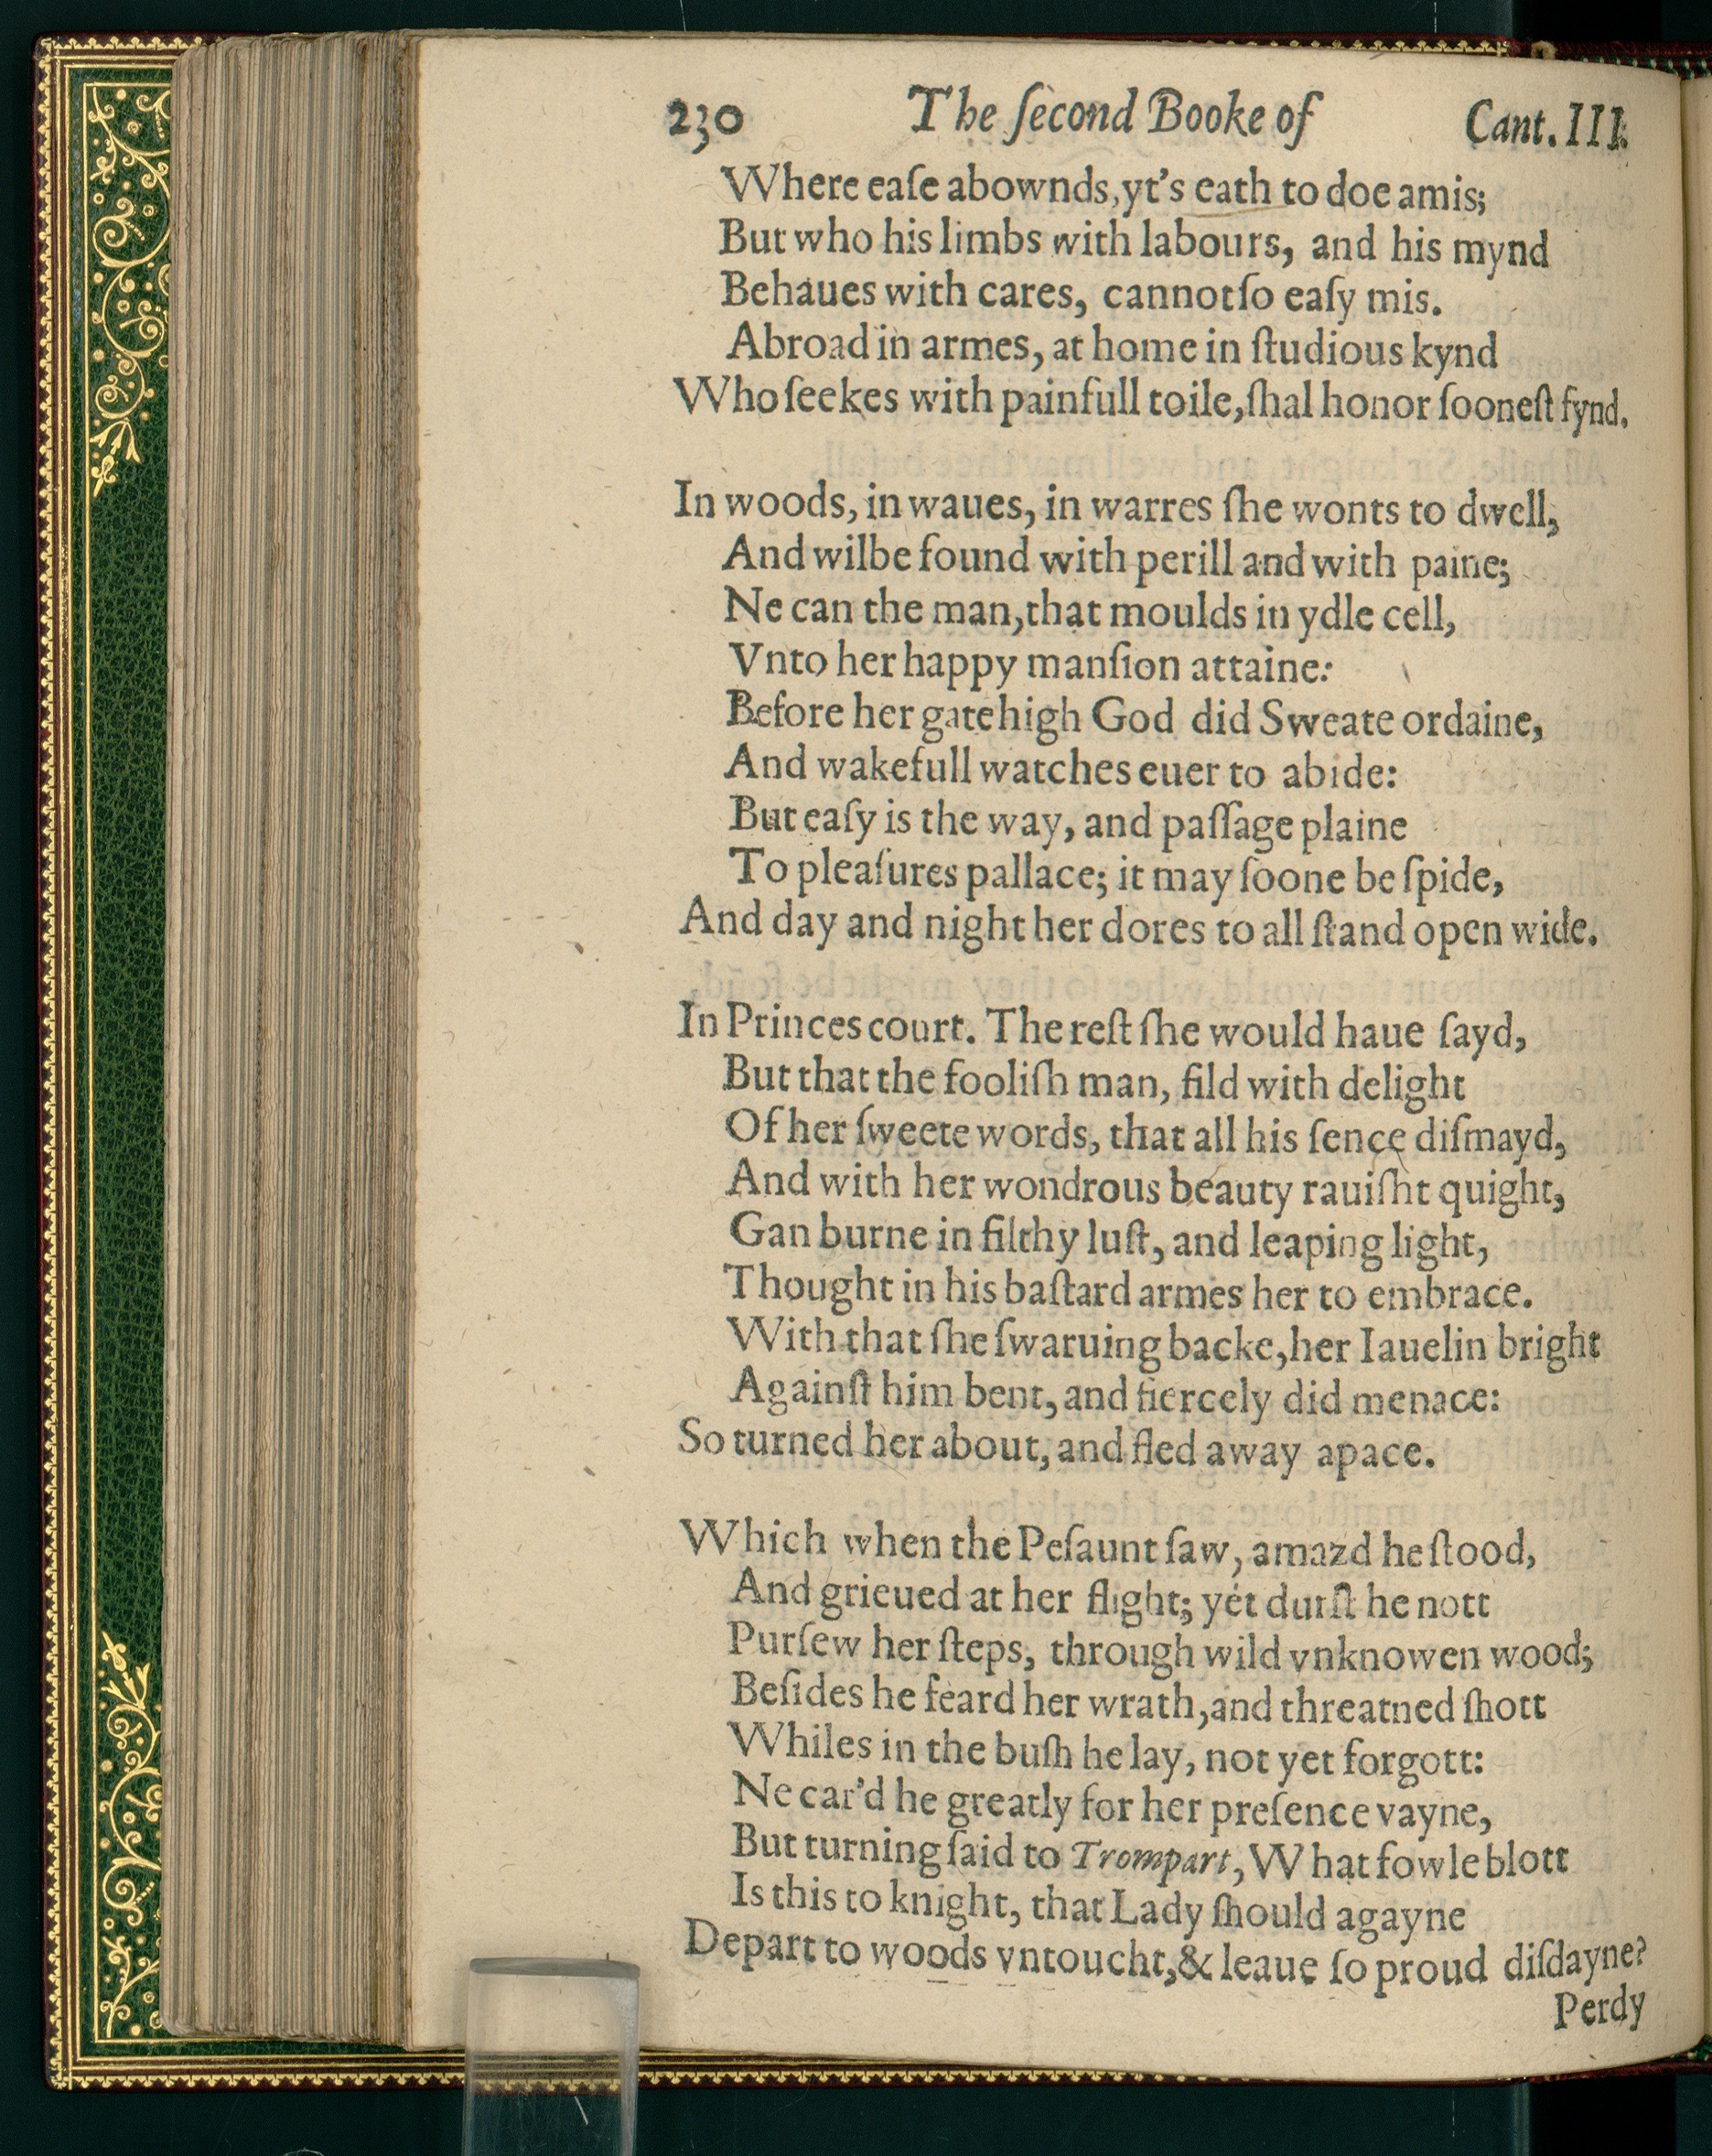 230 The ſecond Booke of Cant. III.
Where eaſe abownds, yt's eath to doe amis;
But who his limbs with labours, and his mynd
Behaues with cares, cannot ſo eaſy mis.
Abroad in armes, at home in ſtudious kynd
Who ſeekes with painfull toile, ſhal honor ſooneſt fynd.

In woods, in waues, in warres ſhe wonts to dwell,
And wilbe found with perill and with paine;
Ne can the man, that moulds in ydle cell,
Vnto her happy manſion attaine:
Before her gate high God did Sweate ordaine,
And wakefull watches euer to abide:
But eaſy is the way, and paſſage plaine
To pleaſures pallace; it may ſoone be ſpide,
And day and night her dores to all ſtand open wide.

In Princes court. The reſt ſhe would haue ſayd,
But that the fooliſh man, fild with delight
Of her ſweete words, that all his ſence diſmayd,
And with her wondrous beauty rauiſht quight,
Gan burne in filthy luſt, and leaping light,
Thought in his baſtard armes her to embrace.
With that ſhe ſwaruing backe, her Iauelin bright
Againſt him bent, and fiercely did menace:
So turned her about, and fled away apace.

Which when the Peſaunt ſaw, amazd he ſtood,
And grieued at her flight; yet durſt he nott
Purſew her ſteps, through wild vnknowen wood;
Beſides he feard her wrath, and threatned ſhott
Whiles in the buſh he lay, not yet forgott:
Ne car'd he greatly for her preſence vayne,
But turning ſaid to Trompart, What fowle blott
Is this to knight, that Lady ſhould agayne
Depart to woods vntoucht, & leaue ſo proud diſdayne?
Perdy